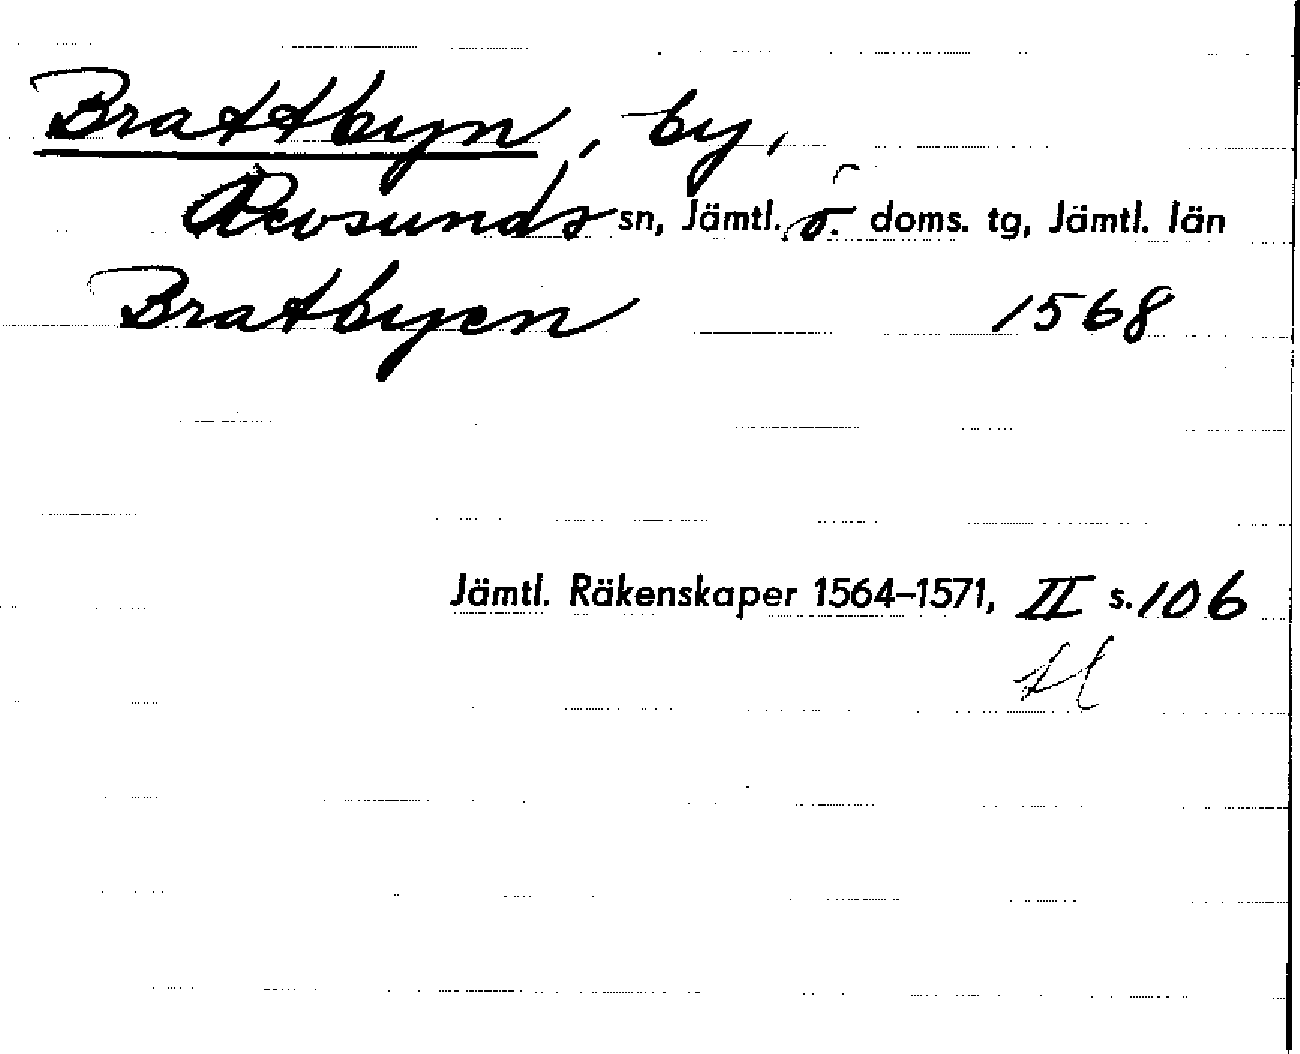 Brattbyn, by,
Revsunds sn, Jämtl. ö. doms. tg, Jämtl. län
Bratbyen 1568
Jämtl. Räkenskaper 1564–1571, II s. 106